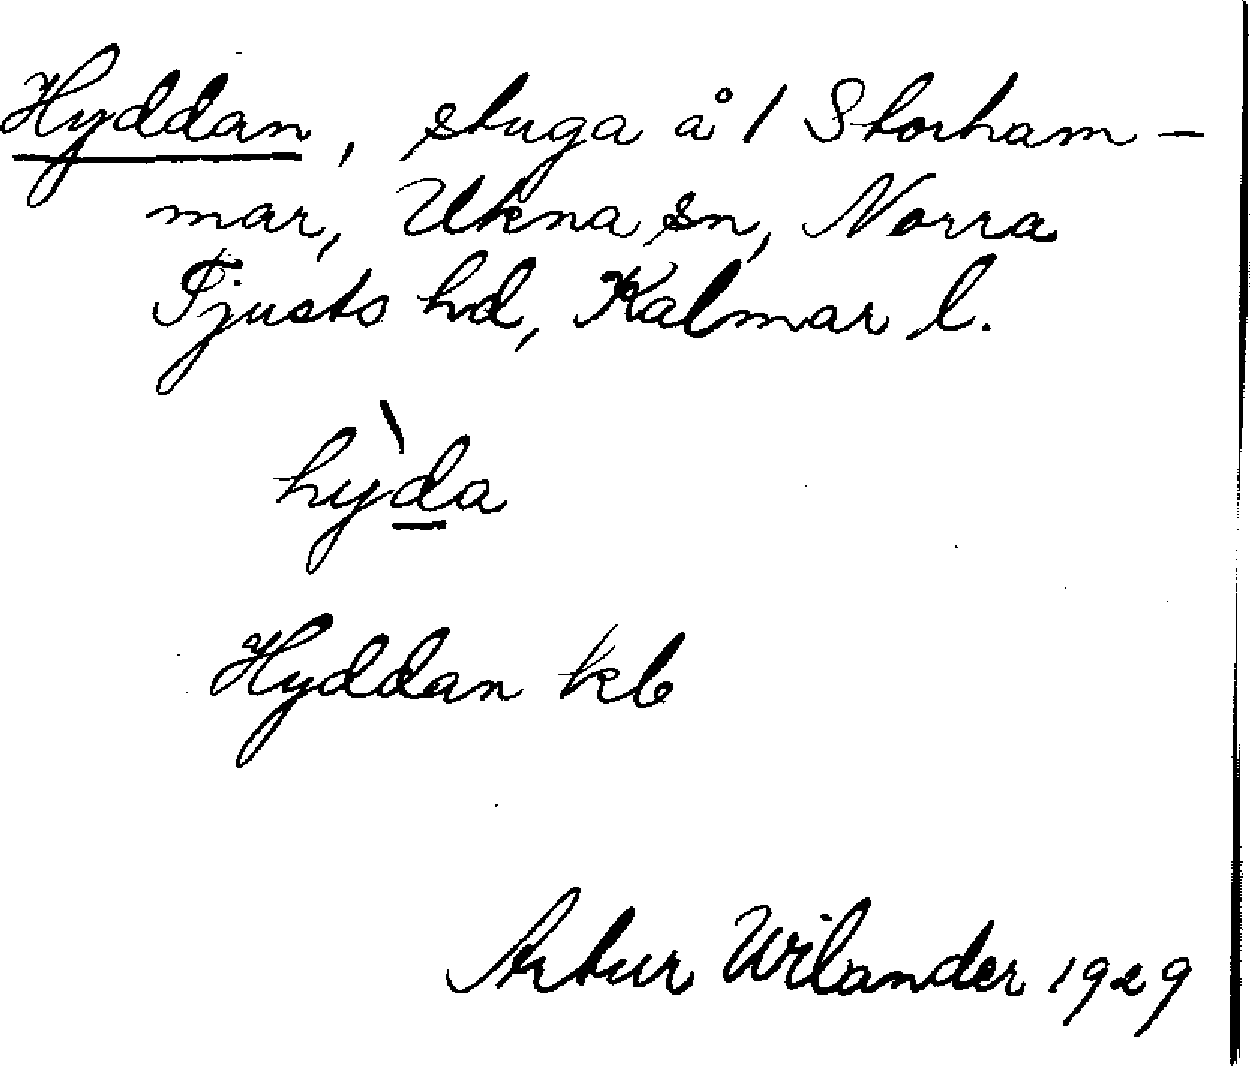 Hyddan, stuga å 1 Storham-
mar, Ukna sn, Norra
Tjusts hd, Kalmar l.
hỳda
Hyddan kb
Artur Wilander 1929